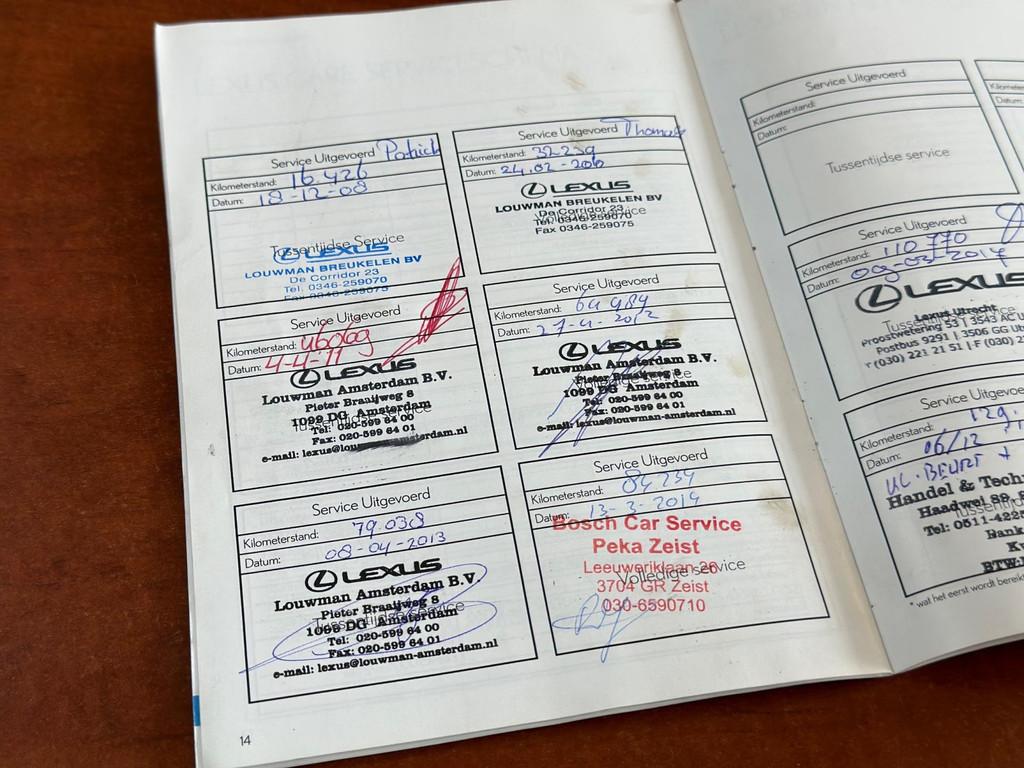 Service Uitgevoerd Patrick
Kilometerstand: 16.426
Datum: 18-12-08
Tussentijdse Service
LEXUS
LOUWMAN BREUKELEN BV
De Corridor 23
Tel. 0346-259070
Fax 0346-259075
Service Uitgevoerd Thomas
Kilometerstand: 32239
Datum: 24-02-2010
LEXUS
LOUWMAN BREUKELEN BV
De Corridor 23
Volledige service
Tel. 0346-259070
Fax 0346-259075
Service Uitgevoerd
Kilometerstand:
Datum: 4-4-11
LEXUS
Louwman Amsterdam B.V.
Pieter Braaijweg 8
1099 DG Amsterdam
Tussentijdse service
Tel: 020-599 64 00
Fax: 020-599 64 01
e-mail: lexus@louwman-amsterdam.nl
Service Uitgevoerd
Kilometerstand: 64984
Datum: 27-4-2012
LEXUS
Louwman Amsterdam B.V.
Pieter Braaijweg 8
Volledige service
1099 DG Amsterdam
Tel: 020-599 64 00
Fax: 020-599 64 01
e-mail: lexus@louwman-amsterdam.nl
Service Uitgevoerd
Kilometerstand: 79.038
Datum: 08-04-2013
LEXUS
Louwman Amsterdam B.V.
Pieter Braaijweg 8
Tussentijdse service
1099 DG Amsterdam
Tel: 020-599 64 00
Fax: 020-599 64 01
e-mail: lexus@louwman-amsterdam.nl
Service Uitgevoerd
Kilometerstand: 84 234
Datum: 13-3-2014
Bosch Car Service
Peka Zeist
Leeuweriklaan 26
Volledige service
3704 GR Zeist
030-6590710
14
Service Uitgevoerd
Kilometerstand:
Datum:
Tussentijdse service
Kilometer
Datum:
Service Uitgevoerd
Kilometerstand: 110 770
Datum: 09-03-2017
LEXUS
Lexus Utrecht
Tussentijdse
Proostwetering 53 | 3543 AC U
Postbus 9291 | 3506 GG Ut
T (030) 221 21 51 | F (030) 2
Service Uitgevoe
Kilometerstand: 129.
Datum: 06/12
KL. BEURT +
Handel & Techn
Haadwei 89,
Tussentijdse
Tel: 0511-422
Bank
BTW:
* wat het eerst wordt bereik